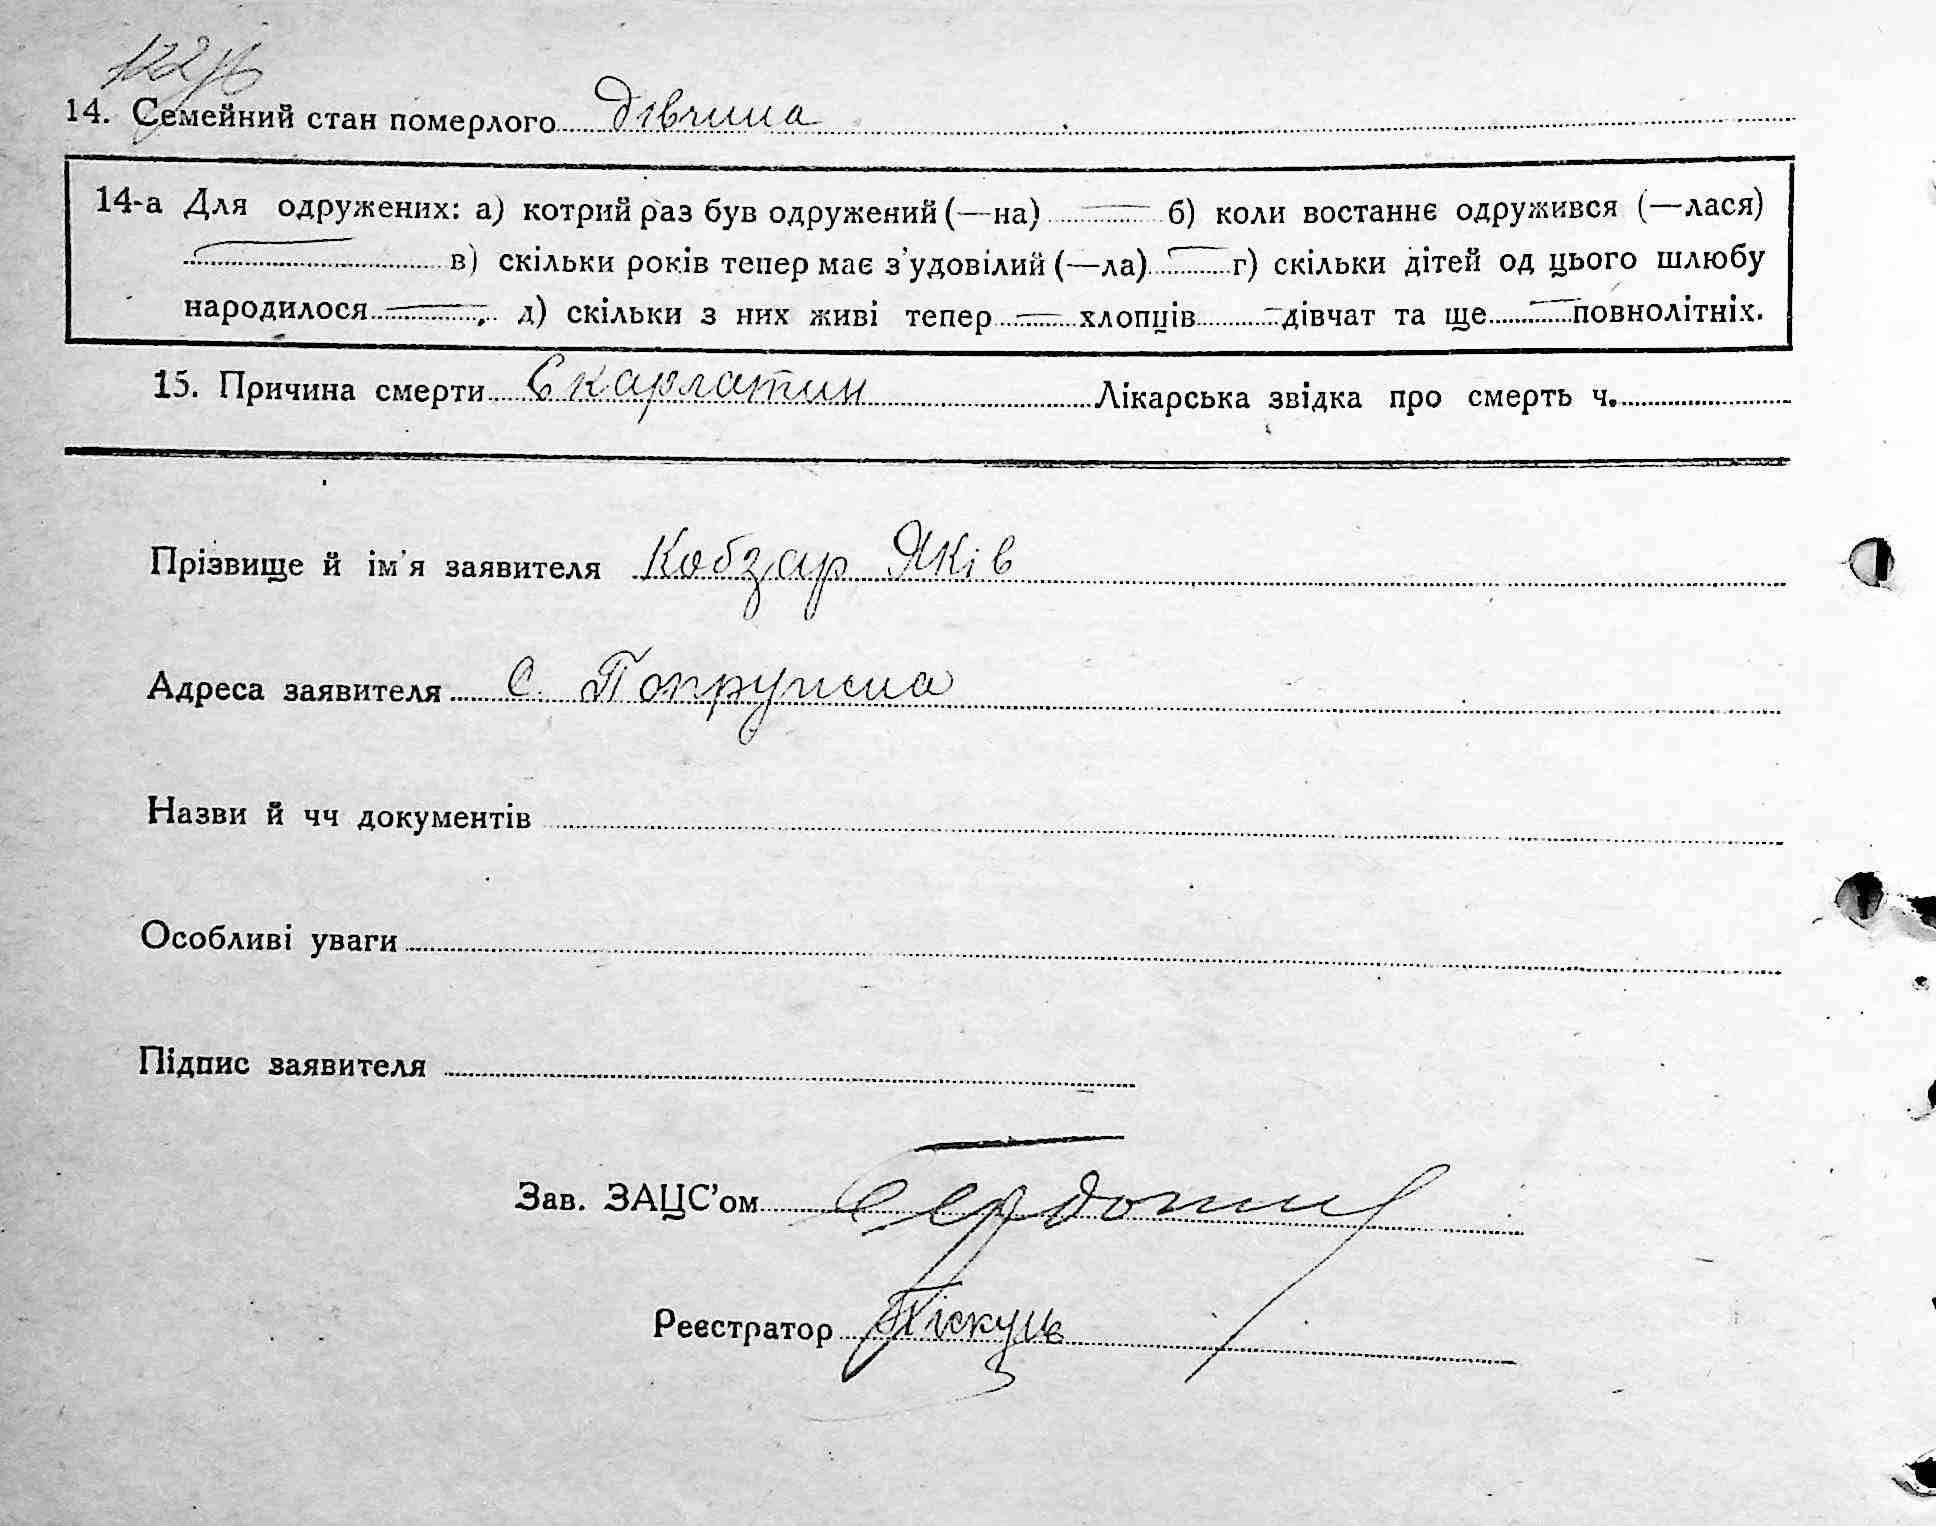 14. Семейний стан померлого дівчина
14-а Для одружених: а) котрий раз був одружений (—на) б) коли востаннє одружився (—лася)
в) скільки років тепер має з'удовілий (—ла) г) скільки дітей од цього шлюбу
народилося д) скільки з них живі тепер хлопців дівчат та ще повнолітніх.
15. Причина смерти Скарлатин Лікарська звідка про смерть ч.
Прізвище й ім'я заявителя Кобзар Яків
Адреса заявителя с. Попружна
Назви й чч документів
Особливі уваги
Підпис заявителя
Зав. ЗАЦС'ом
Реєстратор